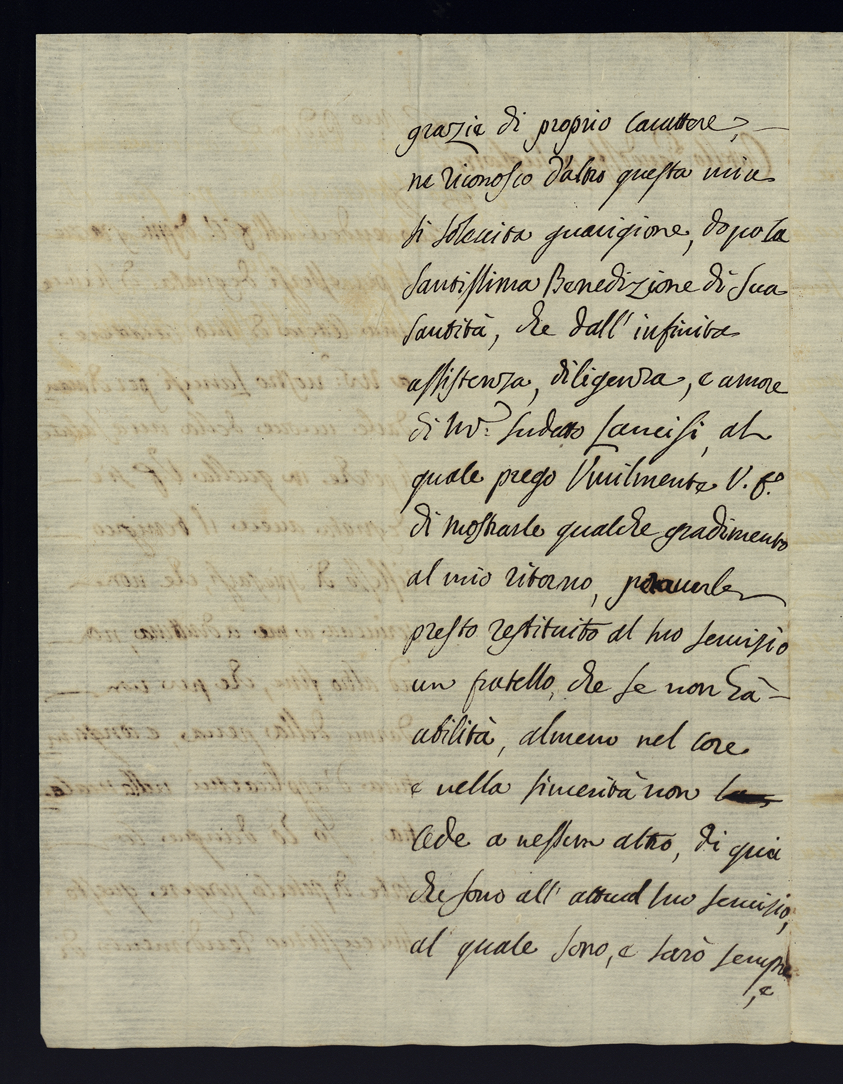 grazie di proprio carattere,
ne riconosco d'altro questa mia
sì sollecita guarigione, dopo la
Santissima Benedizione di Sua
Santità, che dall'infinita
assistenza, diligenza, e amore
di Mr. sudato Lancisi, al
quale prego Umilmente V. E.
di mostrarle qualche gradimento
al mio ritorno, per averle
presto restituito al suo servisio
un fratello, che se non hà
abilità, almeno nel core
e nella sincerità non
cede a nessun altro, di quei
che sono all'attual suo servisio,
al quale sono, e sarò sempre
, e